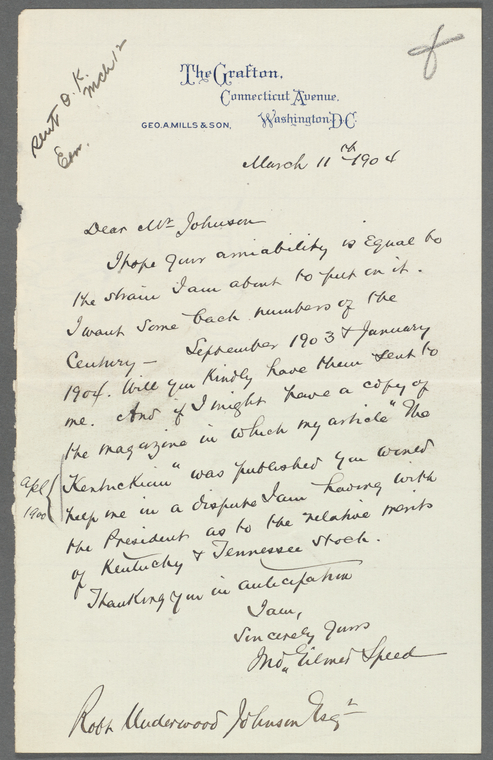 Sent O.K.
Mch 12
The Grafton,
Connecticut Avenue.
GEO. A. MILLS & SON,
Washington D.C.
March 11th 1904
Dear Mr Johnson
I hope your amiability is equal to
the strain I am about to put on it.
I want some back numbers of the
Century - September 1903 & January
1904. Will you kindly have them sent to
me. And if I might have a copy of
the magazine in which my article "The
Kentuckian" was published you would
Apl
1900
help me in a dispute I am having with
the President as to the relative merits
of Kentucky & Tennessee stock.
Thanking you in anticipation
I am,
Sincerely yours
Jno. Gilmer Speed
Robt Underwood Johnson Esqr